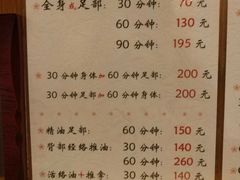 全身或足部: 30 分钟: 70 元
60 分钟: 130 元
90 分钟: 195 元
30 分钟身体加 60 分钟足部: 200 元
30 分钟足部加 60 分钟身体: 200 元
精油足部: 60 分钟: 150 元
背部经络推油: 30 分钟: 140 元
60 分钟: 260 元
活络油+推拿: 30 分钟: 140 元